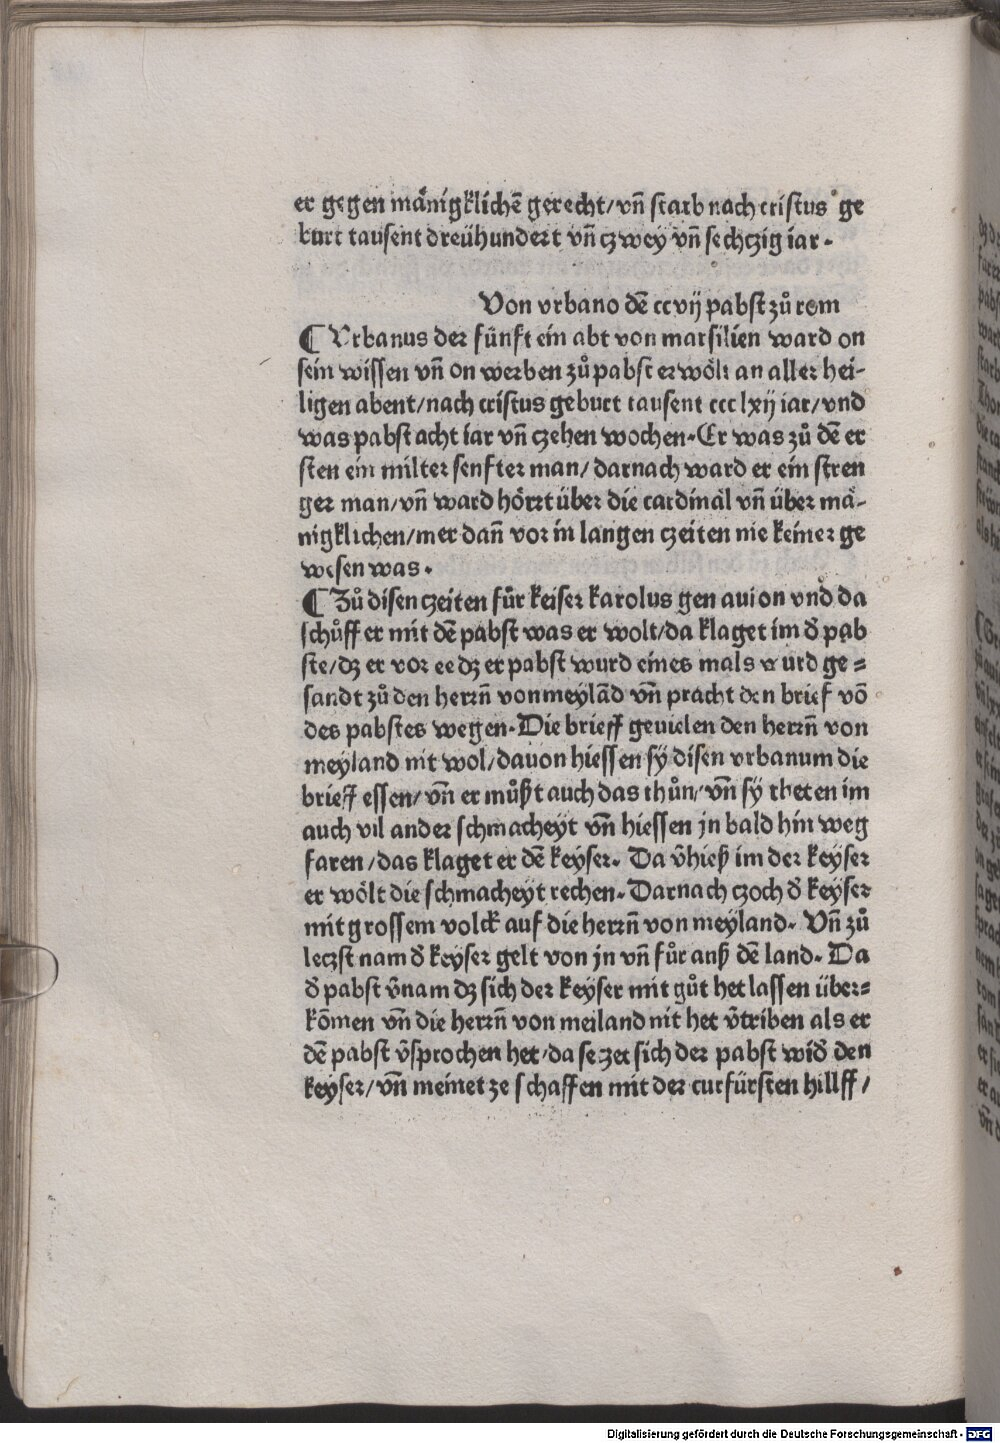 er gegen mänigklichē gerecht/vn̄ starb nach cristus ge
burt tausent dreühundert vn̄ czwey vn̄ sechczig iar.
Von vrbano dē ccvij pabst zů rom
¶ Vrbanus der fünft ein abt von marsilien ward on
sein wissen vn̄ on werben zů pabst erwölt an aller hei-
ligen abent/nach cristus geburt tausent ccc lxij iar/vnd
was pabst acht iar vn̄ czehen wochen. Er was zů dē er
sten ein milter senfter man/darnach ward er ein stren
ger man/vn̄ ward hörrt über die cardinäl vn̄ über mä-
nigklichen/mer dan̄ vor in langen czeiten nie keiner ge
wesen was.
¶ Zů disen czeiten fůr keiser karolus gen auion vnd da
schůff er mit dē pabst was er wolt/da klaget im d̄ pab
ste/dz er vor ee dz er pabst wurd eines mals wurd ge=
sandt zů den herrn̄ von meylād vn̄ pracht den brief vō
des pabstes wegen. Die brieff geuielen den herrn̄ von
meyland nit wol/dauon hiessen sÿ disen vrbanum die
brieff essen/vn̄ er můßt auch das thůn/vn̄ sÿ theten im
auch vil ander schmacheÿt vn̄ hiessen jn bald hin weg
faren/das klaget er dē keÿser. Da v̄hieß im der keÿser
er wölt die schmacheÿt rechen. Darnach czoch d̄ keÿser
mit grossem volck auf die herrn̄ von meÿland. Vn̄ zů
leczst nam d̄ keyser gelt von jn vn̄ fůr auß dē land. Da
d̄ pabst v̄nam dz sich der keÿser mit gůt het lassen über=
kōmen vn̄ die herrn̄ von meiland nit het v̄triben als er
dē pabst v̄sprochen het/da seczet sich der pabst wid̄ den
keÿser/vn̄ meinet ze schaffen mit der curfürsten hillff/
Digitalisierung gefördert durch die Deutsche Forschungsgemeinschaft - DFG